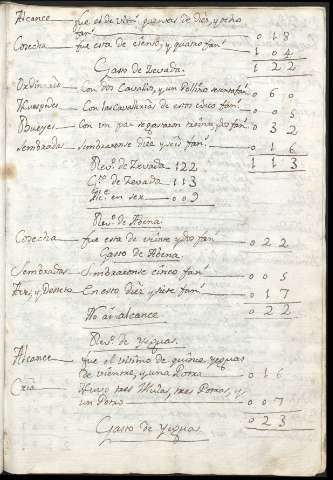 Alcance — fue el de vtim. quentas de diez, y ocho
fan.s 018
Cosecha — fue esta de ciento, y quatro fan.s 104
Gasto de Zevada. 122
Ordinario — con dos Cavallos, y un Pollino sesenta fan.s 060
Huespedes — Con las Cavallerias de estos cinco fan.s 005
Bueyes — Con un par se gastaron treinta, y dos fan.s 032
Sembradas — Sembraronse diez y seis fan.s 016
Rev.o de Zevada 122 113
G.to de Zevada 113
Alc.e en ser 009
Rev.o de Abena
Cosecha — fue esta de veinte y dos fan.s 022
Gasto de Abena
Sembradas — Sembraronse cinco fan.s 005
En esto diez y siete fan.s 017
No ai alcance 022
Rev.o de Yeguas.
Alcance — fue el ultimo de quince yeguas
de vientre, y una Potra 016
Cria — Huvo tres Mulas, tres Potras, y
un Potro 007
023
Gasto de Yeguas